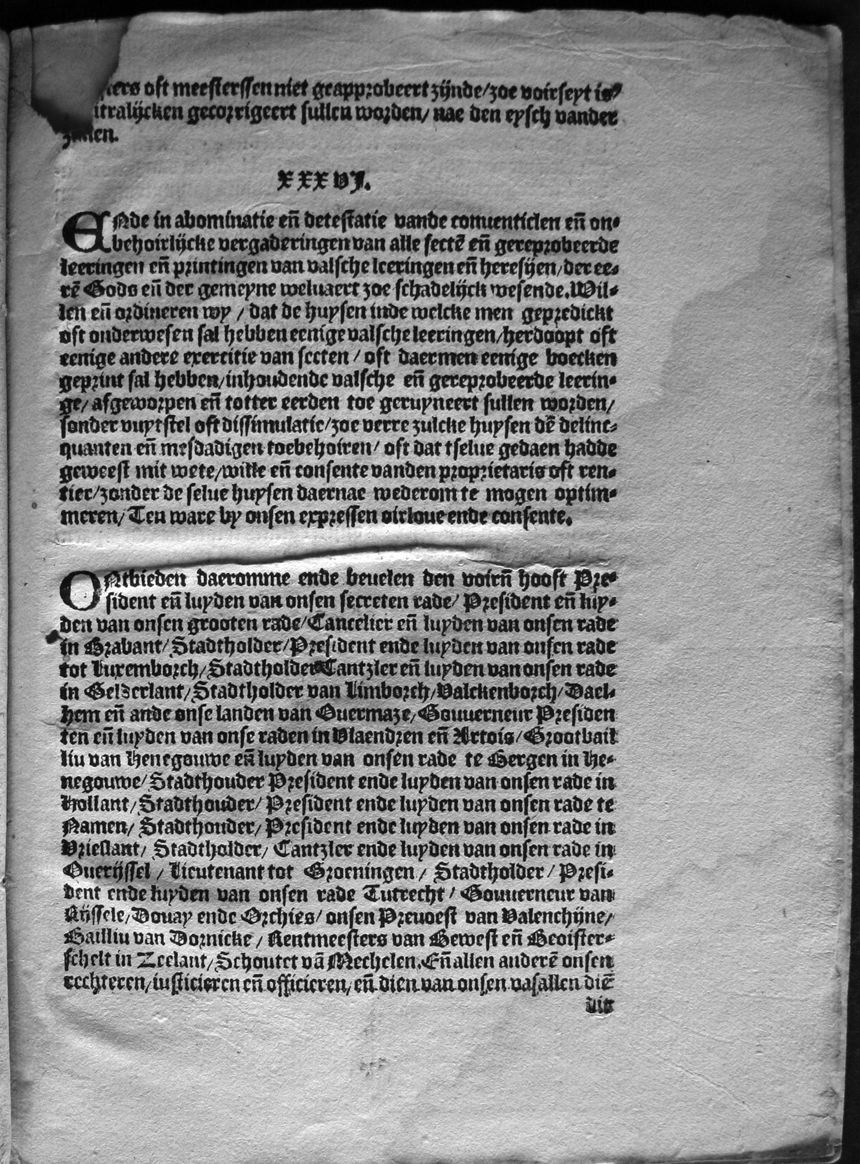 oft meesterssen niet geapprobeert zijnde/zoe voirseyt is/
gecorrigeert sullen worden/ nae den eysch vander
XXXVJ.
ENde in abominatie eñ detestatie vande conuenticlen eñ on⸗
behoirlijcke vergaderingen van alle sectē eñ gereprobeerde
leeringen eñ printingen van valsche leeringen eñ heresijen/der ee⸗
rē Gods eñ der gemeyne weluaert zoe schadelijck wesende.Wil⸗
len eñ ordineren wy / dat de huysen inde welcke men gepredickt
oft onderwesen sal hebben eenige valsche leeringen/herdoopt oft
eenige andere exercitie van secten / oft daermen eenige boecken
geprint sal hebben/inhoudende valsche eñ gereprobeerde leerin⸗
ge/ afgeworpen eñ totter eerden toe geruyneert sullen worden/
sonder vuytstel oft dissimulatie/zoe verre zulcke huysen dē delinc⸗
quanten eñ mesdadigen toebehoiren/ oft dat tselue gedaen hadde
geweest mit wete/wille eñ consente vanden proprietaris oft ren⸗
tier/zonder de selue huysen daernae wederom te mogen optim⸗
meren/Ten ware by onsen expressen oirloue ende consente.
ONtbieden daeromme ende beuelen den voirñ hooft Pre⸗
sident eñ luyden van onsen secreten rade/ President eñ luy⸗
den van onsen grooten rade/Cancelier eñ luyden van onsen rade
in Brabant/Stadtholder/President ende luyden van onsen rade
tot Luxemborch/Stadtholder Cantzler eñ luyden van onsen rade
in Gelderlant/Stadtholder van Limborch/Valckenborch/Dael⸗
hem eñ ande onse landen van Ouermaze/Gouuerneur Presiden
ten eñ luyden van onse raden in Vlaendren eñ Artois/Grootbail
liu van Henegouwe eñ luyden van onsen rade te Bergen in He⸗
negouwe/Stadthouder President ende luyden van onsen rade in
Hollant/Stadthouder/ President ende luyden van onsen rade te
Namen/ Stadthouder/ President ende luyden van onsen rade in
Vrieslant/ Stadtholder/ Cantzler ende luyden van onsen rade in
Ouerijssel / Lieutenant tot Groeningen / Stadtholder / Presi⸗
dent ende luyden van onsen rade Tutrecht / Gouuerneur van
Rijssele/Douay ende Orchies/ onsen Preuoest van Valenchijne/
Bailliu van Dornicke / Rentmeesters van Bewest eñ Beoister⸗
schelt in Zeelant/Schoutet vā Mechelen.Eñ allen anderē onsen
rechteren/iusticieren eñ officieren/eñ dien van onsen vasallen diē
dit